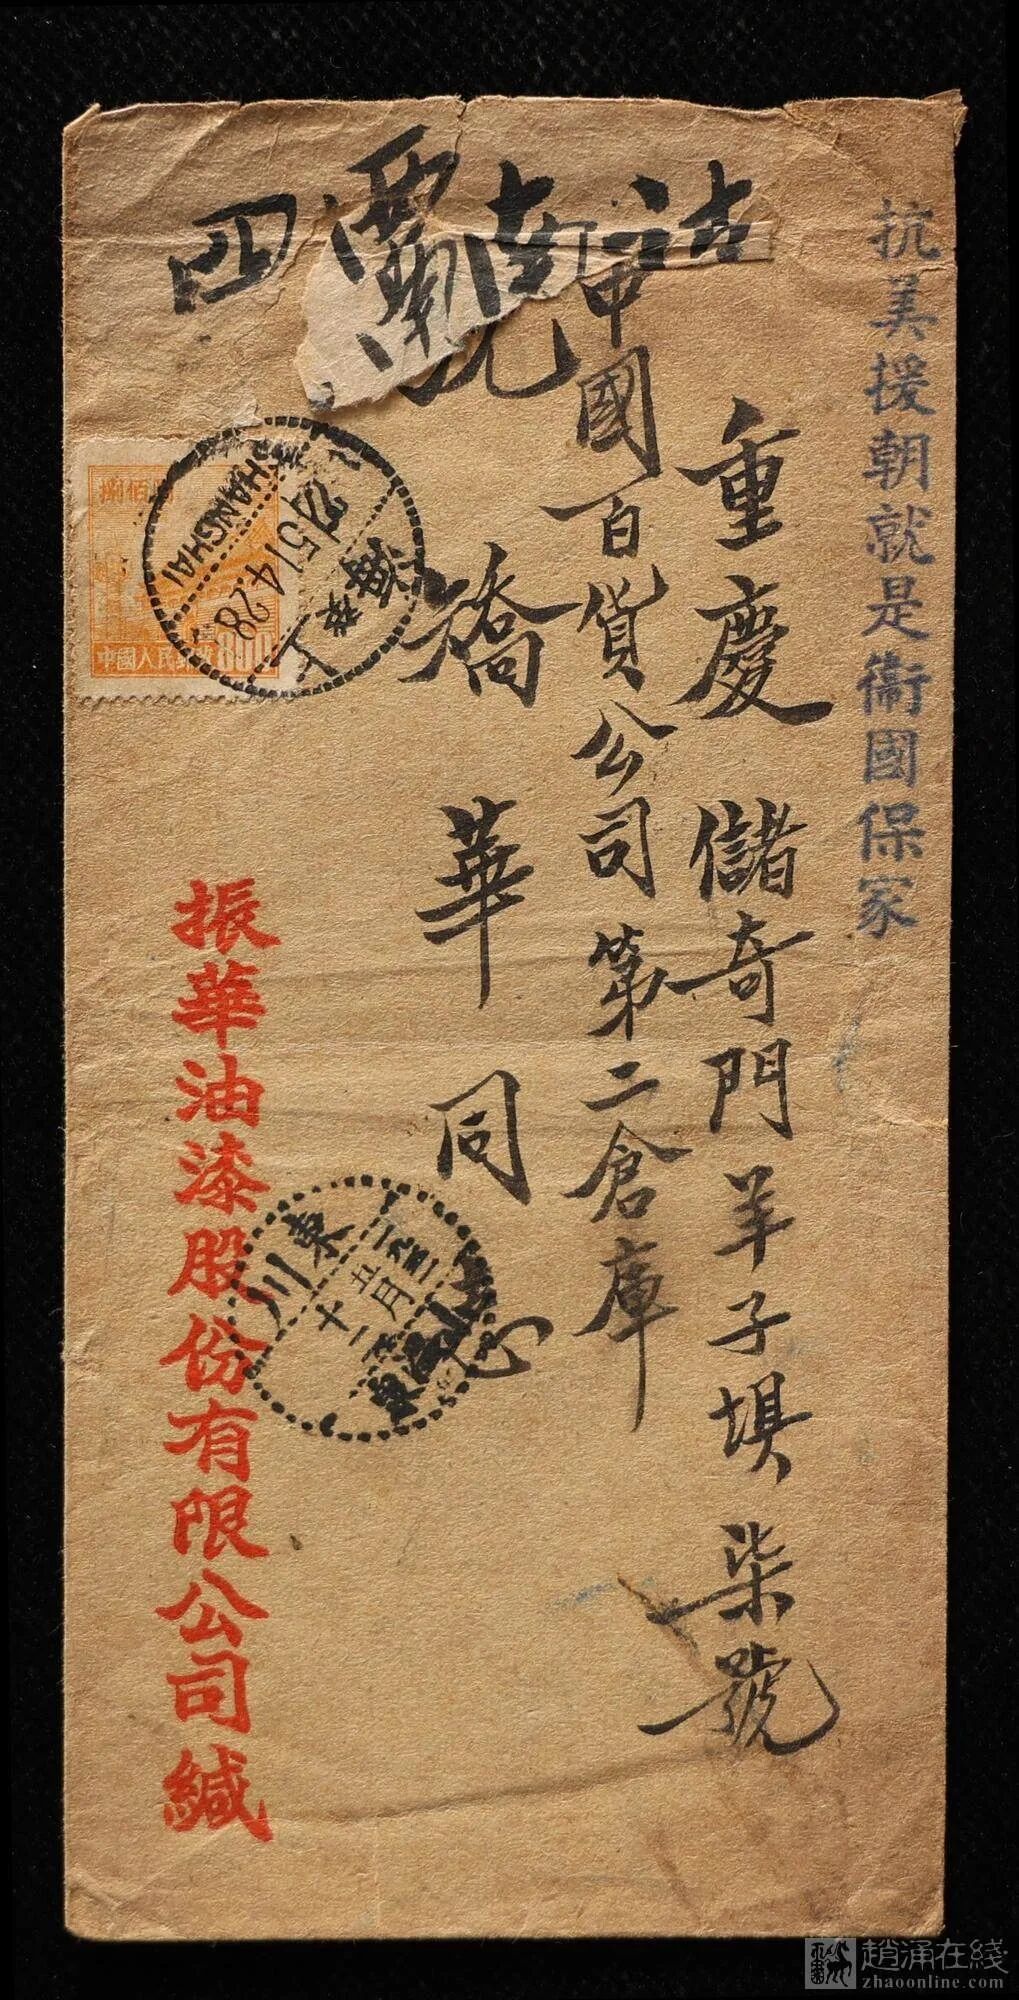 抗美援朝就是衞國保家
重慶儲奇門羊子壩柒號
中國百貨公司第二倉庫
喬華同志
捌佰圓
中國人民郵政
800
上海
51.4.28
SHANGHAI
東川
一九五一
五月
十一
振華油漆股份有限公司緘
趙涌在綫
zhaoonline.com